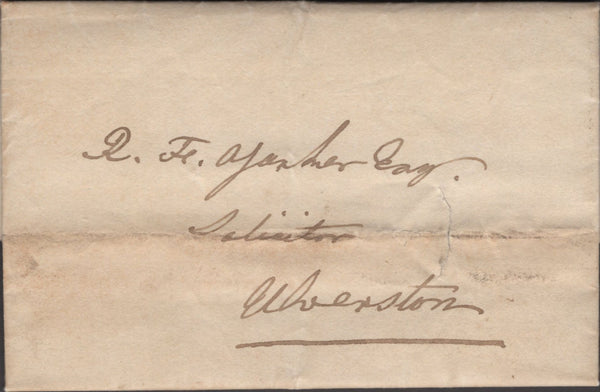 R. F. Yarker Esq.
Solicitor
Ulverston